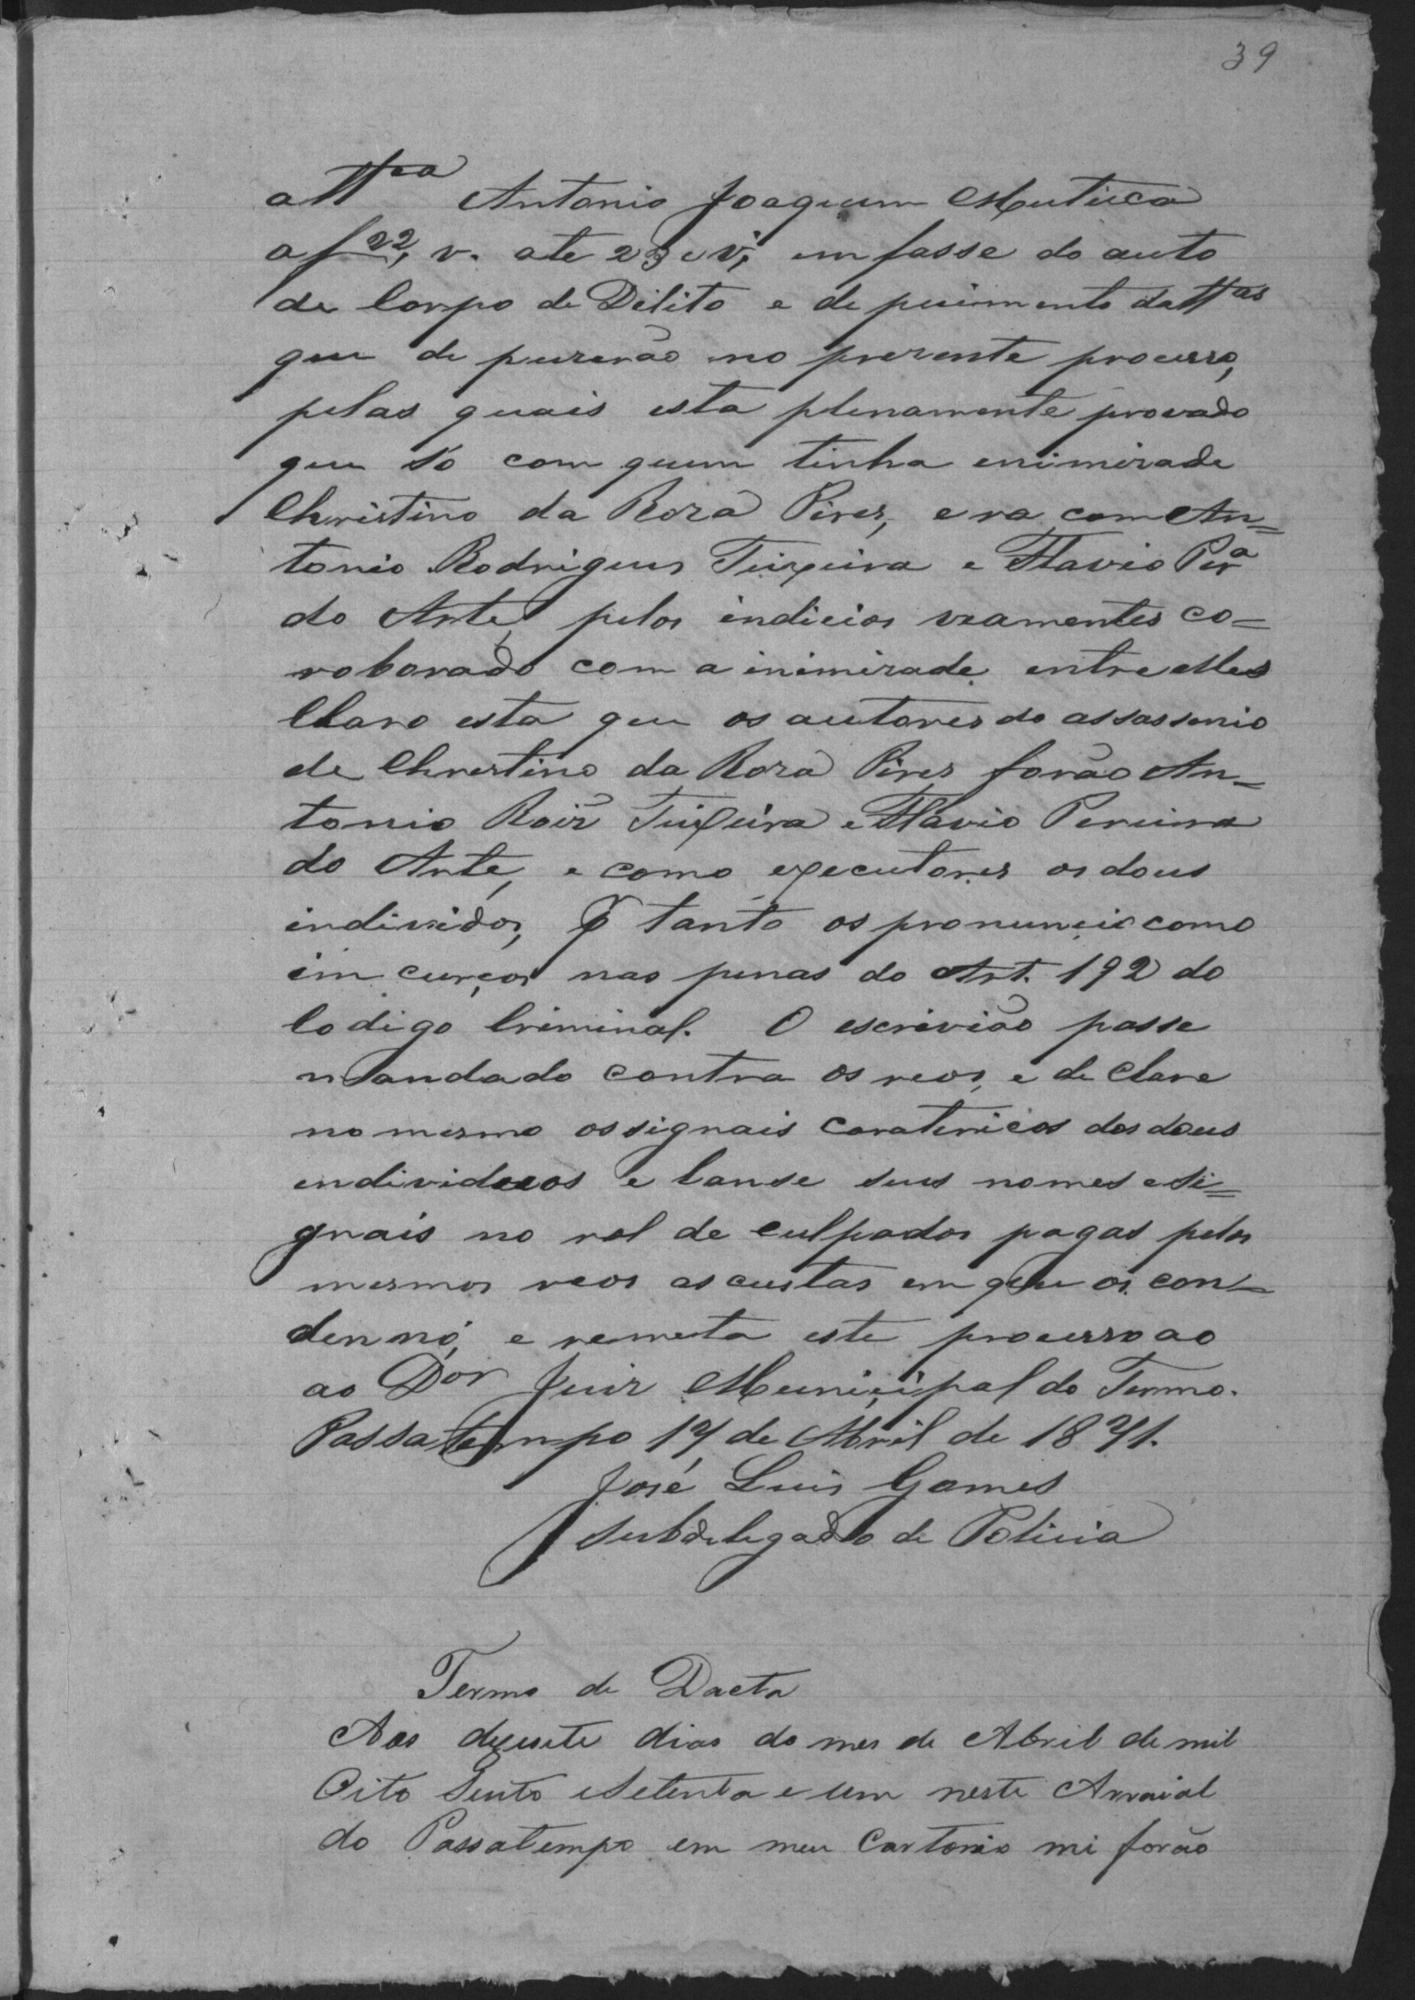 39
a tt^ra Antonio Joaquim Mutuca
a f 22, v. ate 23 e v; em fasse do auto
de Corpo de Dilito e de puimento da tt^as
que de puzerão no prezente processo,
pelas quais esta plenamente provado
que só com quem tinha enimizade
Christino da Roza Pires, era com An=
tonio Rodrigues Teixeira e Flavio Per^a
do Arte, pelos indicios veamentes co=
roborado com a inimizade entre elles
Claro esta que os autores do assassonio
de Chrestino da Roza Pires forão An=
tonio Roiz Teixeira e Flavio Pereira
do Arte, e como executores os dous
individos, P tanto os pronuncio como
im curços nas penas do Art. 192 do
Codigo Criminal. O escrivião passe
mandado contra os reos, e de Clare
no mesmo os signais caratericos dos dous
endividuos e lanse seus nomes e si=
gnais no rol de culpados pagas pelos
mesmos reos as custas em que os con=
denno, e remeta este processo ao
ao D^or Juiz Municipal do Termo.
Passatempo 17 de Abril de 1871.
José Luis Gomes
Subdelegado de Policia
Termo de Dacta
Aos dezesete dias do mes de Abril de mil
Oito Sento e Setenta e um neste Arraial
do Passatempo em meu Cartorio mi forão